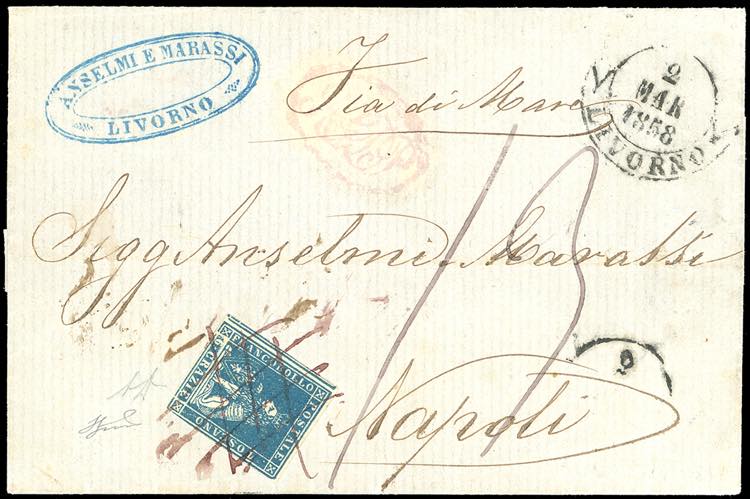 ANSELMI E MARASSI
LIVORNO
Via di Mare
2
MAR
1858
LIVORNO
Sigg Anselmi. Marassi
13
Napoli
9
FRANCOBOLLO
POSTALE
TOSCANO
2 CRAZIE